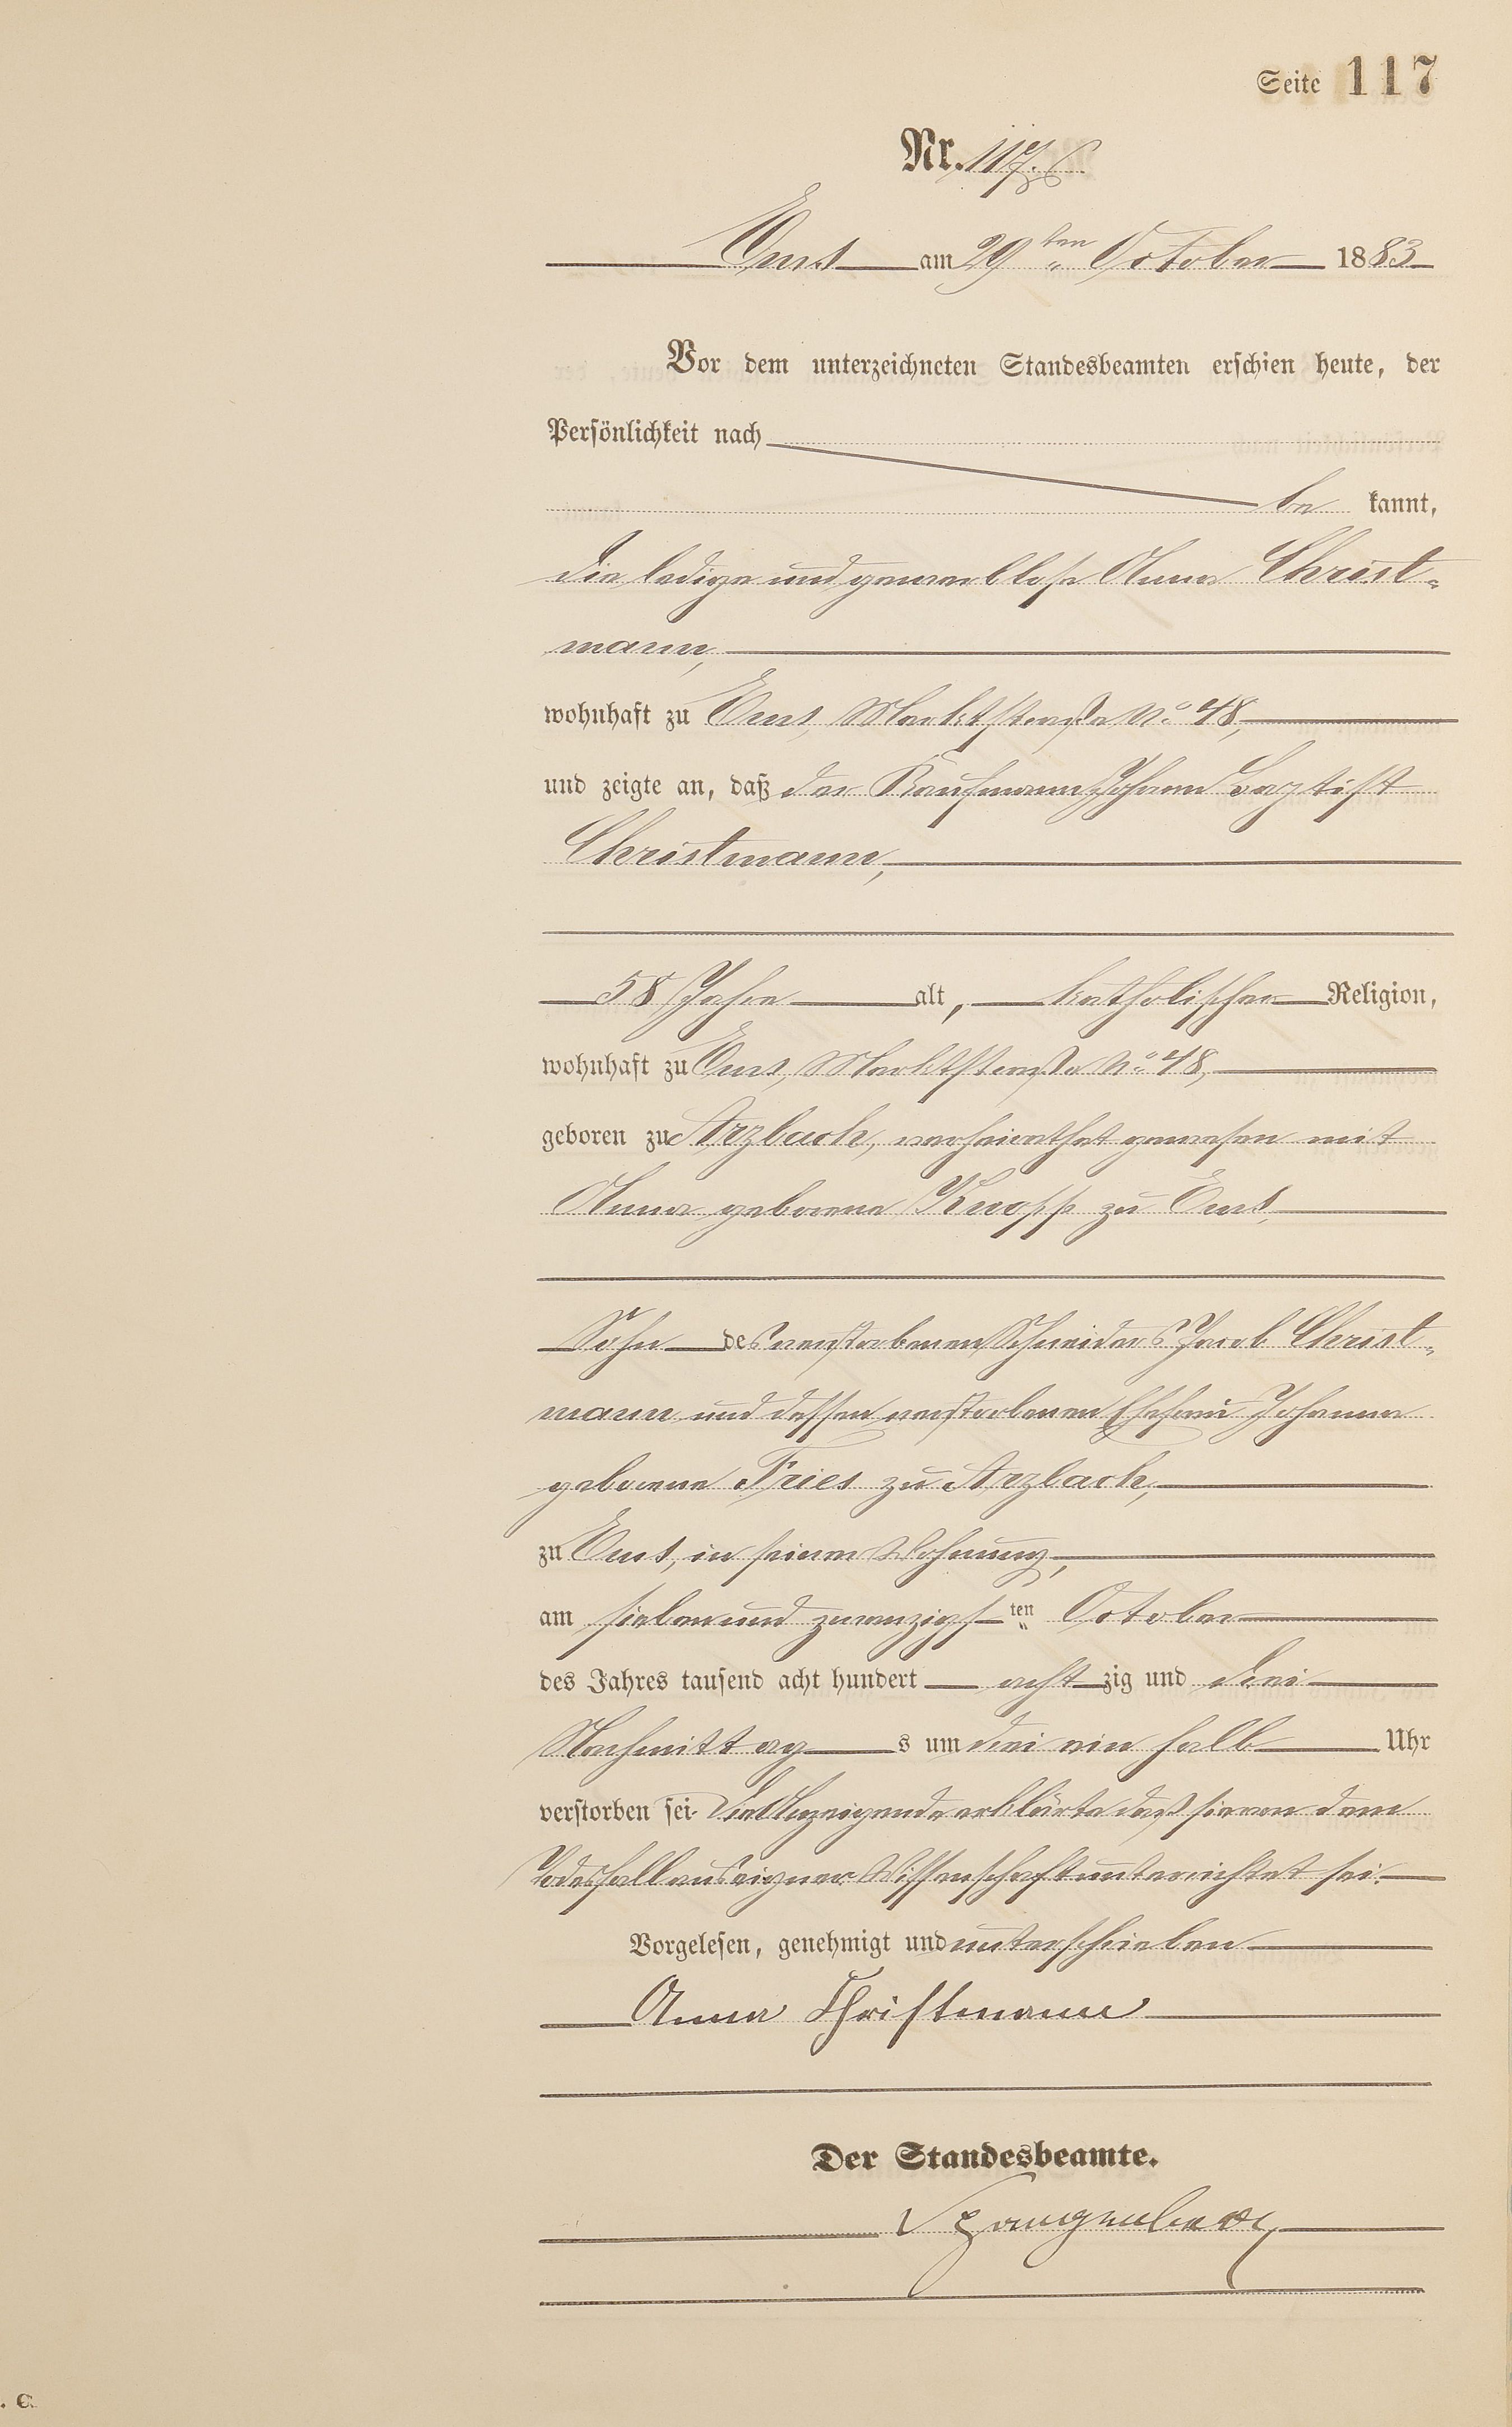 Seite 117
Nr. 117.
Ems am 29ten October 1883
Vor dem unterzeichneten Standesbeamten erschien heute, der
Persönlichkeit nach
be kannt,
die ledige und gewerblose Anna Christ-
mann,
wohnhaft zu Ems, Marktstraße No 48,
und zeigte an, daß der Kaufmann Johann Baptist
Christmann,
58 Jahre alt, katholischer Religion,
wohnhaft zu Ems, Marktstraße No 48,
geboren zu Arzbach, verheirathet gewesen mit
Anna geborene Knopp zu Ems,
Sohn des verstorbenen Schneiders Jacob Christ-
mann und dessen verstorbenen Ehefrau Johanna
geborene Fries zu Arzbach,
zu Ems, in seiner Wohnung,
am sieben und zwanzigsten October
des Jahres tausend acht hundert achtzig und drei
Nachmittags um drei ein halb Uhr
verstorben sei. Die Anzeigende erklärte daß sie von dem
Todesfall aus eigner Wissenschaft unterrichtet sei.
Vorgelesen, genehmigt und unterschrieben
Anna Christmann
Der Standesbeamte.
Spangenberg